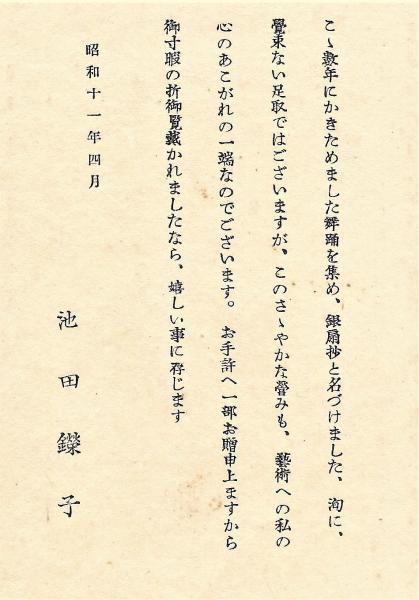 こゝ數年にかきためました舞踊を集め、銀扇抄と名づけました、洵に、
覺束ない足取ではございますが、このさゝやかな營みも、藝術への私の
心のあこがれの一端なのでございます。お手許へ一部お贈申上ますから
御寸暇の折御覧戴かれましたなら、嬉しい事に存じます
昭和十一年四月
池田鑅子